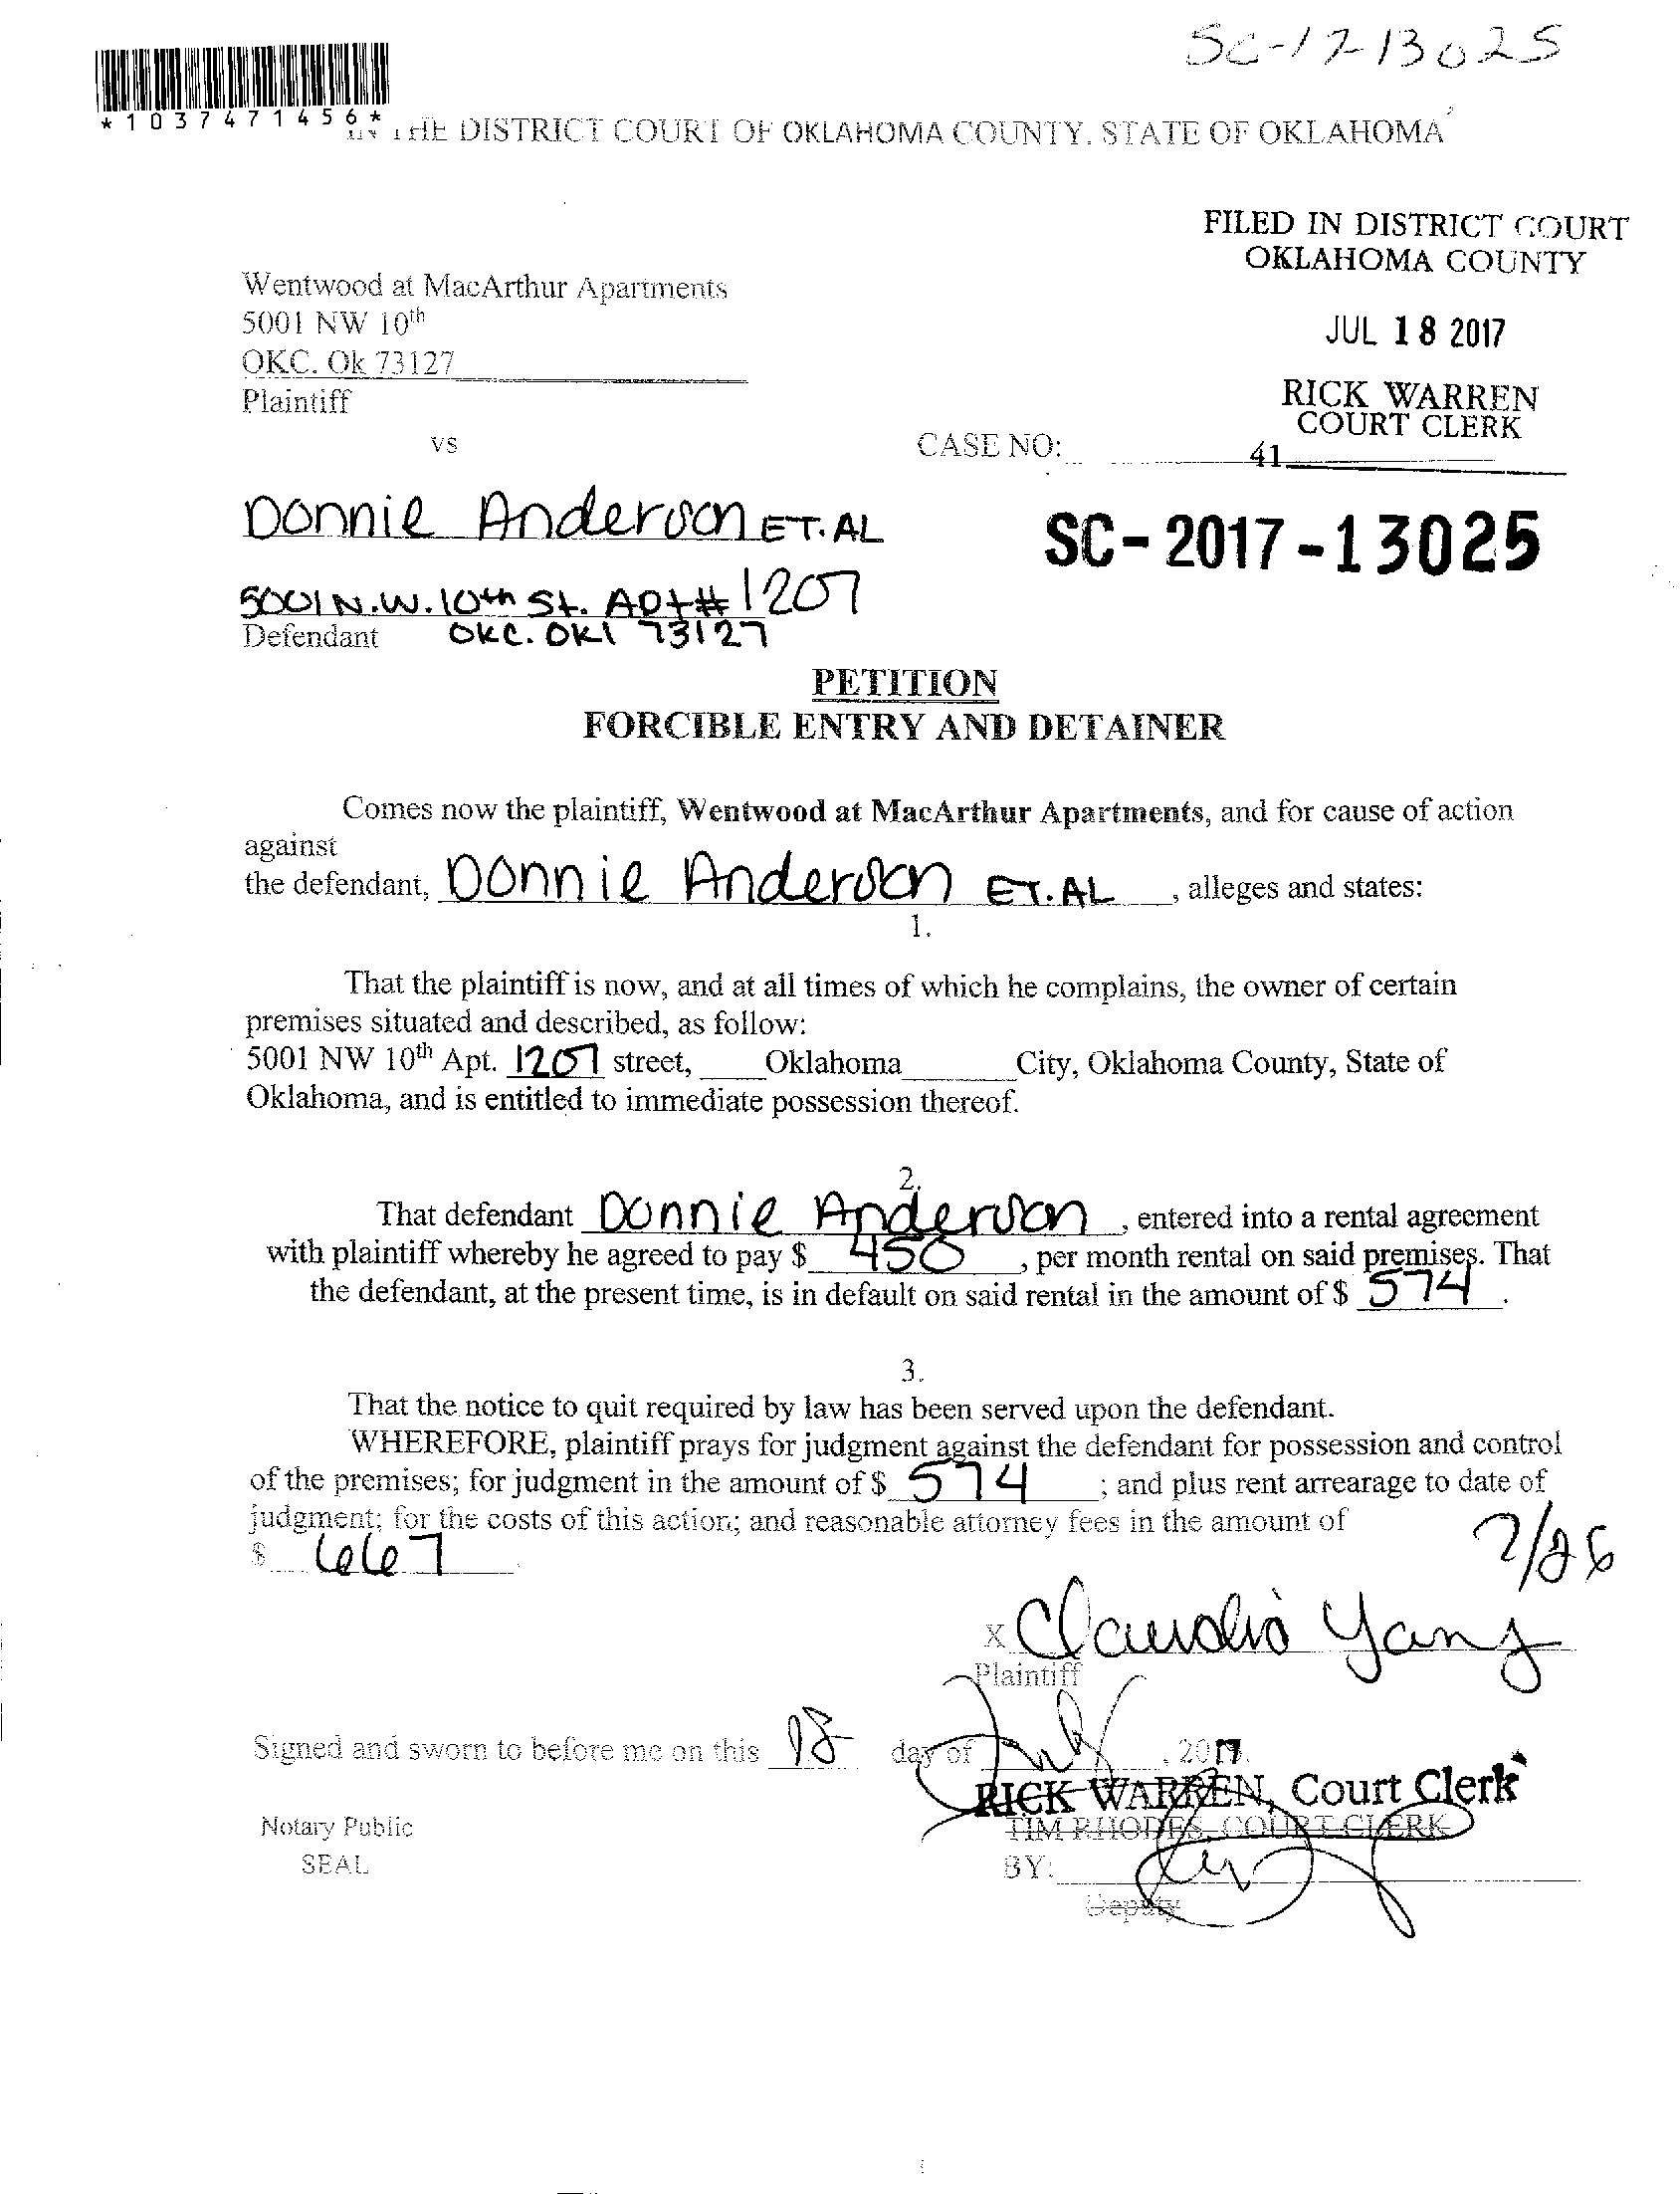 SC-17-13025
*1037471456*
IN THE DISTRICT COURT OF OKLAHOMA COUNTY, STATE OF OKLAHOMA
FILED IN DISTRICT COURT
OKLAHOMA COUNTY
Wentwood at MacArthur Apartments
5001 NW 10th
JUL 18 2017
OKC. Ok 73127
Plaintiff
RICK WARREN
COURT CLERK
vs
CASE NO:
41
Donnie Anderson ET.AL
SC-2017-13025
5001 N.W. 10th St. Apt# 1207
Defendant OKC. OKl 73127
PETITION
FORCIBLE ENTRY AND DETAINER
Comes now the plaintiff, Wentwood at MacArthur Apartments, and for cause of action
against
the defendant, Donnie Anderson ET.AL , alleges and states:
1.
That the plaintiff is now, and at all times of which he complains, the owner of certain
premises situated and described, as follow:
5001 NW 10th Apt. 1207 street, Oklahoma City, Oklahoma County, State of
Oklahoma, and is entitled to immediate possession thereof.
2.
That defendant Donnie Anderson , entered into a rental agreement
with plaintiff whereby he agreed to pay $ 450 , per month rental on said premises. That
the defendant, at the present time, is in default on said rental in the amount of $ 574 .
3.
That the notice to quit required by law has been served upon the defendant.
WHEREFORE, plaintiff prays for judgment against the defendant for possession and control
of the premises; for judgment in the amount of $ 574 ; and plus rent arrearage to date of
judgment; for the costs of this action; and reasonable attorney fees in the amount of
$ 667
7/26
x Claudia Yang
Plaintiff
Signed and sworn to before me on this 18 day of July , 2017.
RICK WARREN, Court Clerk
TIM RHODES, COURT CLERK
Notary Public
SEAL
BY:
Deputy